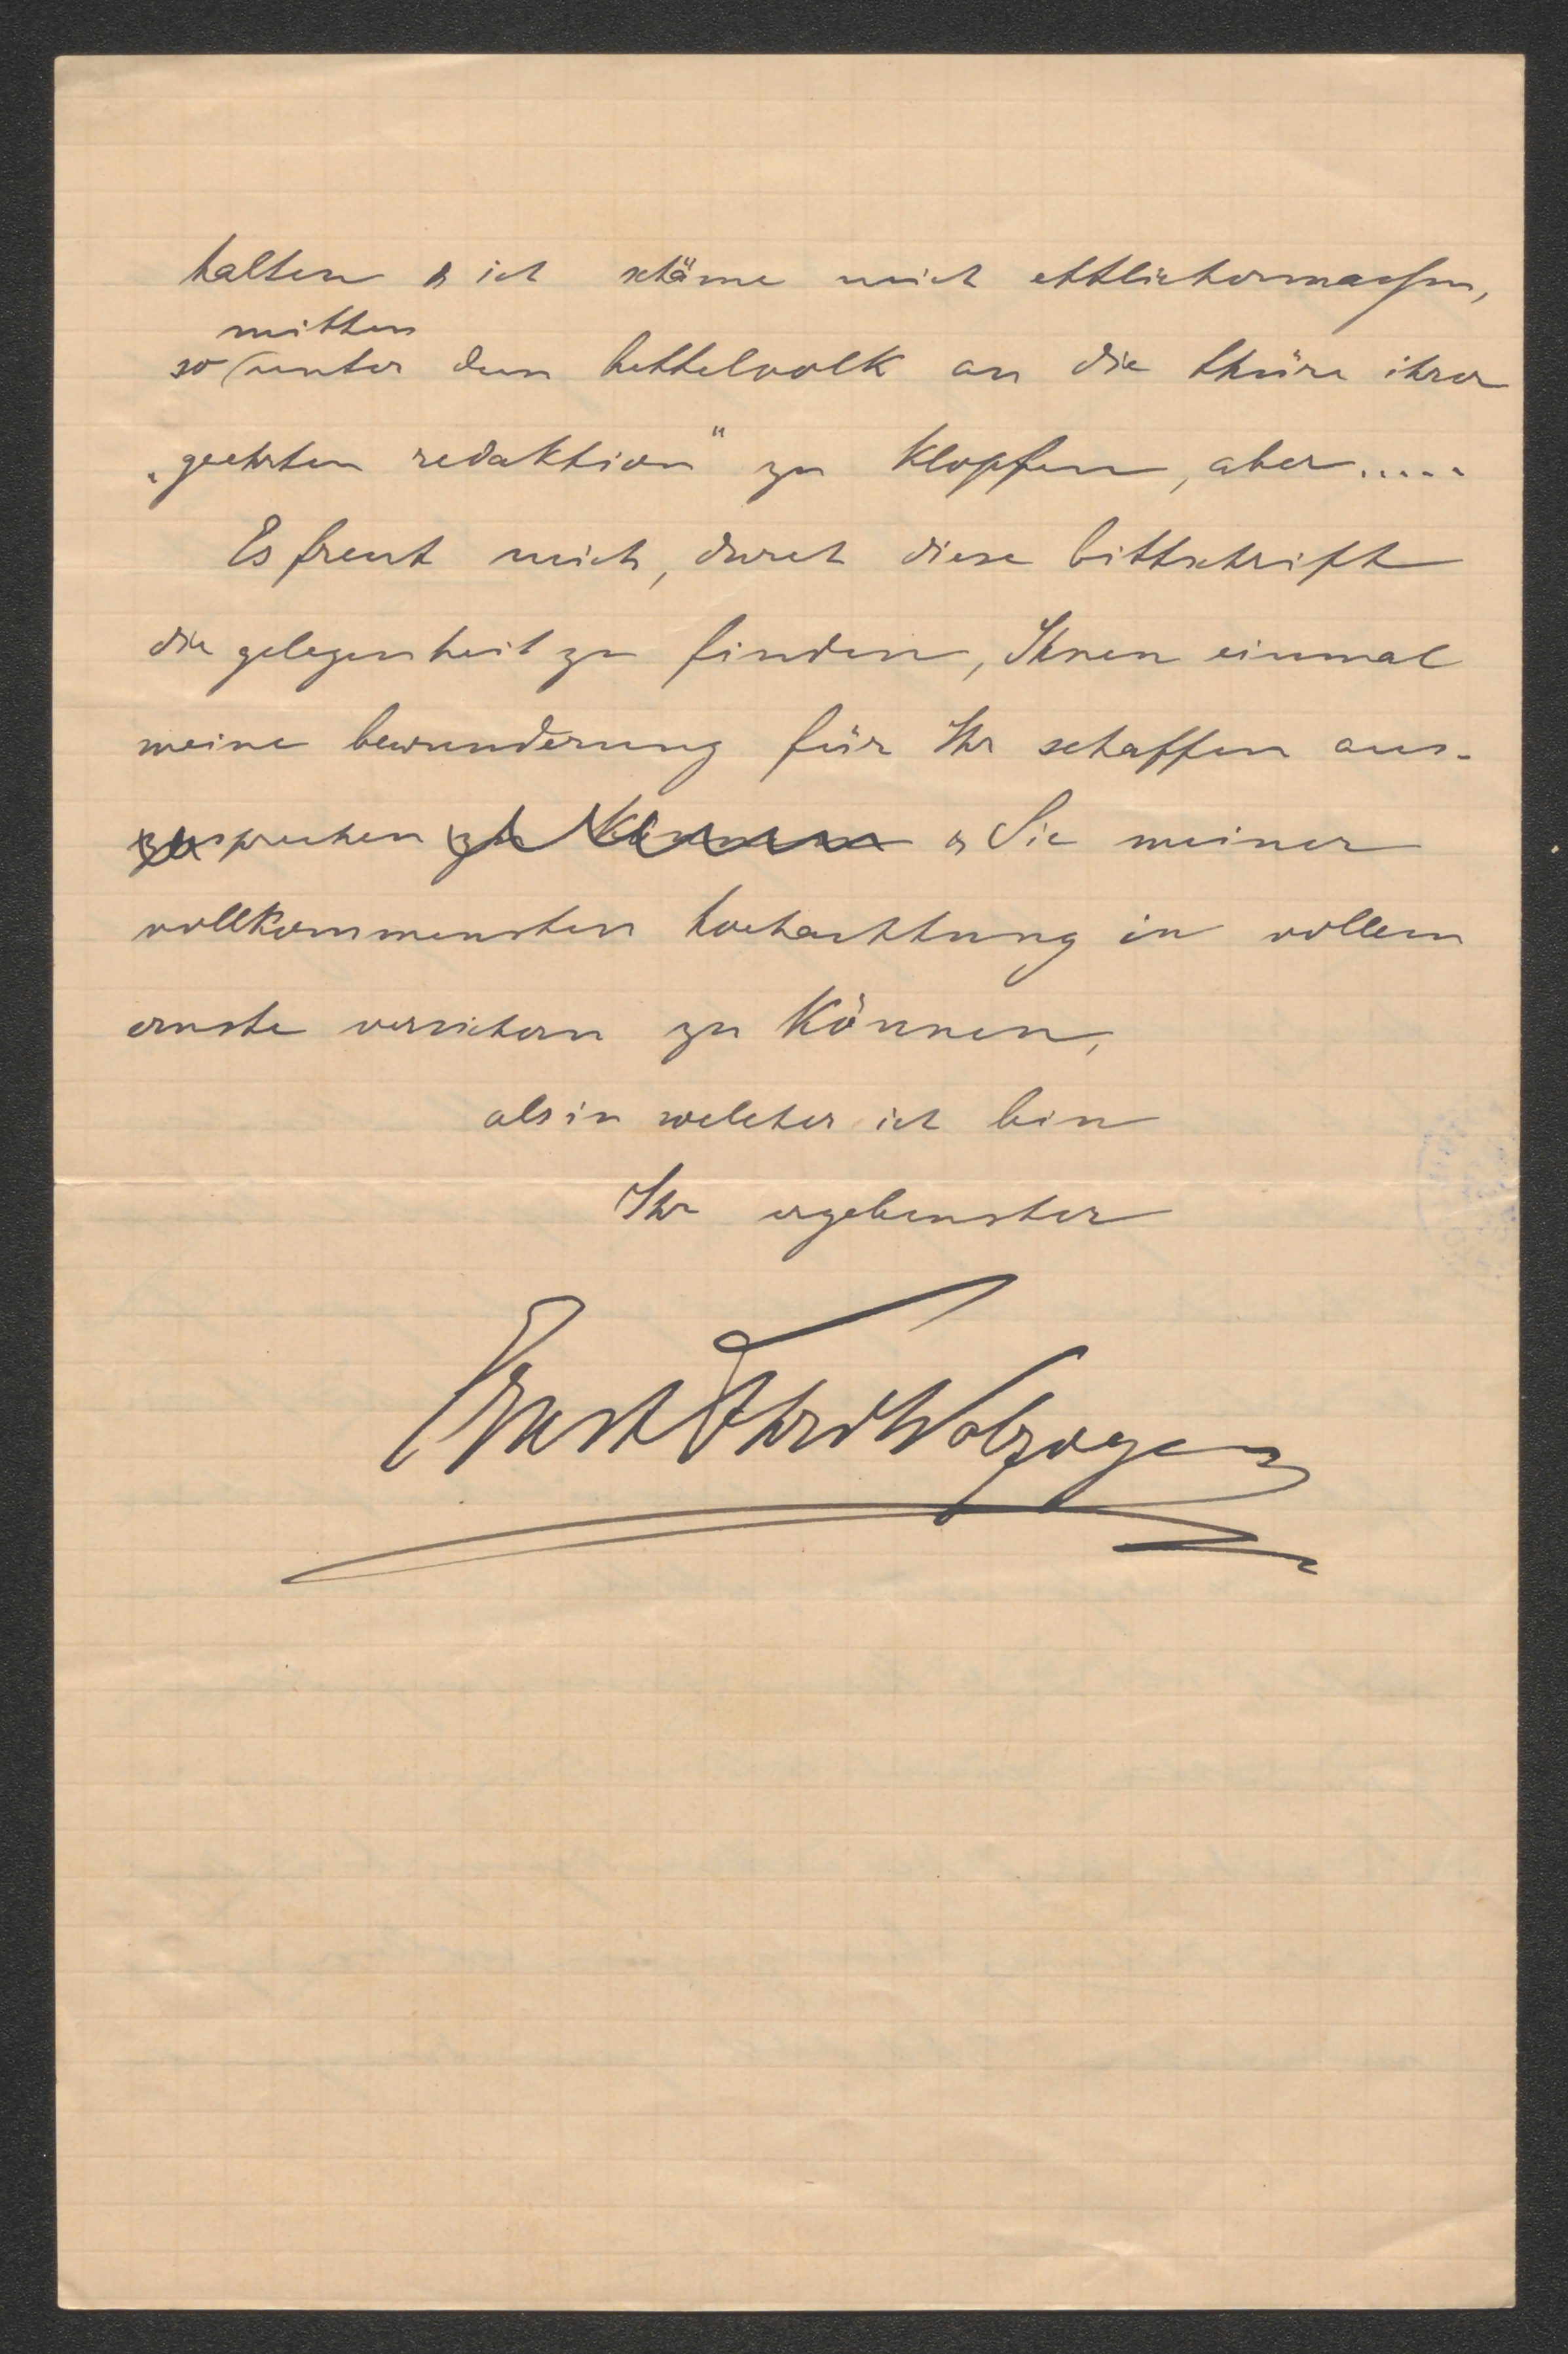 halten & ich schäme mich ettlichermassen,
mitten
so unter dem bettelvolk an die thüre ihrer
„geehrten redaktion" zu klopfen, aber.....
Es freut mich, durch diese bittschrift
die gelegenheit zu finden, Ihnen einmal
meine bewunderung für Ihr schaffen aus-
zusprechen zu können & Sie meiner
vollkommensten hochachtung in vollem
ernste versichern zu können,
als in welcher ich bin
Ihr ergebenster
Ernst Frhr v Wolzogen